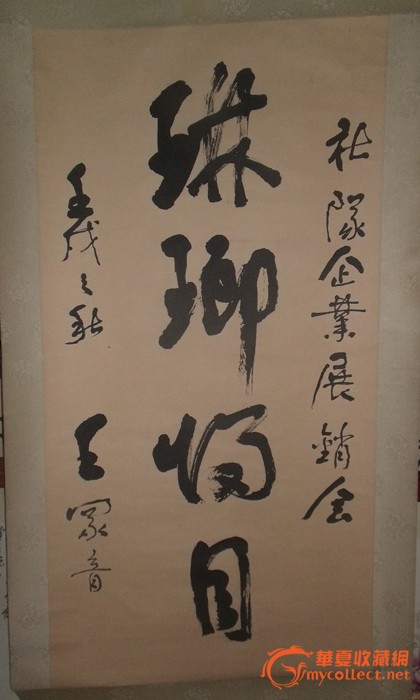 社隊企業展銷会
琳瑯满目
壬戌之秋
王 音
華夏收藏網
mycollect.net